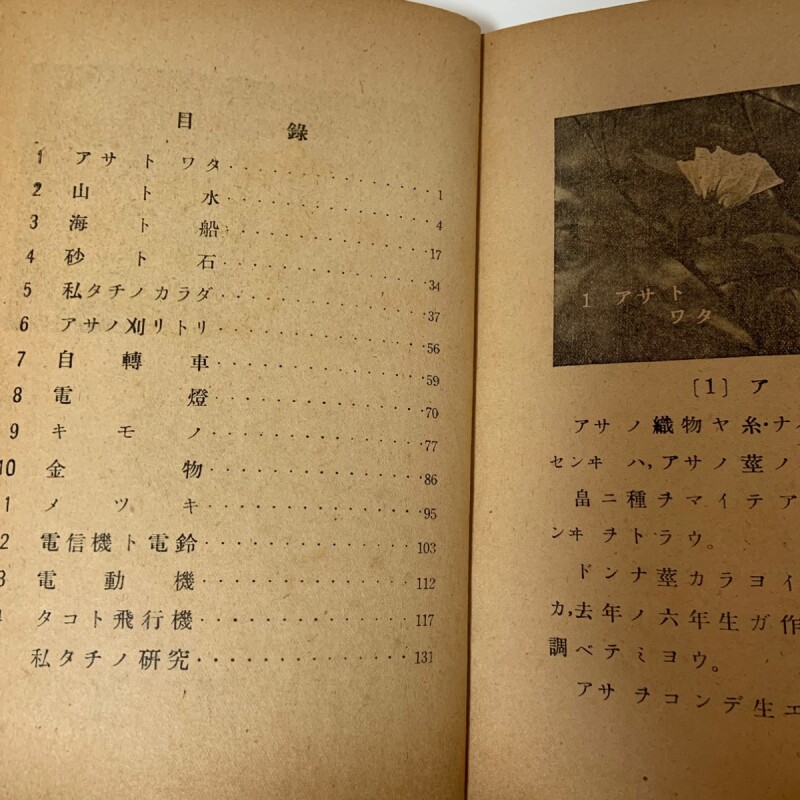 目錄
1 アサトワタ 1
2 山ト水 4
3 海ト船 17
4 砂ト石 34
5 私タチノカラダ 37
6 アサノ刈リトリ 56
7 自轉車 59
8 電燈 70
9 キモノ 77
10 金物 86
1 メツキ 95
2 電信機ト電鈴 103
3 電動機 112
4 タコト飛行機 117
私タチノ研究 131
1 アサト
ワタ
〔1〕ア
アサノ織物ヤ糸・ナ
センヰハ,アサノ莖ノ
畠ニ種ヲマイテア
ンヰヲトラウ。
ドンナ莖カラヨイ
カ,去年ノ六年生ガ作
調ベテミヨウ。
アサヲコンデ生エ